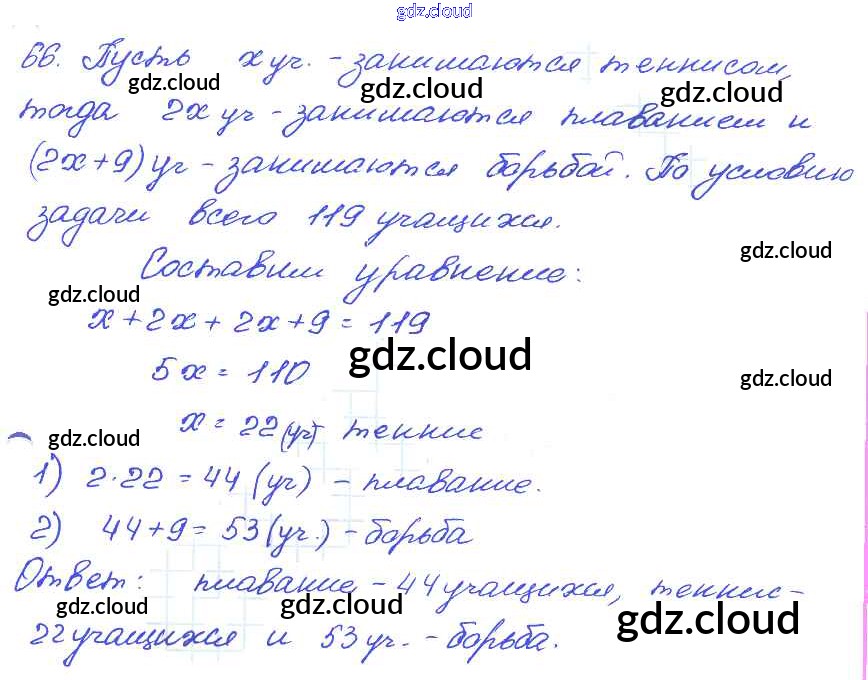 gdz.cloud
66. Пусть x уч. - занимаются теннисом,
gdz.cloud gdz.cloud gdz.cloud
тогда 2x уч - занимаются плаванием и
(2x+9) уч - занимаются борьбой. По условию
задачи всего 119 учащихся.
gdz.cloud
Составим уравнение:
gdz.cloud
x + 2x + 2x + 9 = 119
gdz.cloud
5x = 110
gdz.cloud
x = 22 (уч) теннис
gdz.cloud
1) 2·22 = 44 (уч) - плавание.
2) 44+9 = 53 (уч.) - борьба
Ответ: плавание - 44 учащихся, теннис -
gdz.cloud gdz.cloud gdz.cloud
22 учащихся и 53 уч. - борьба.